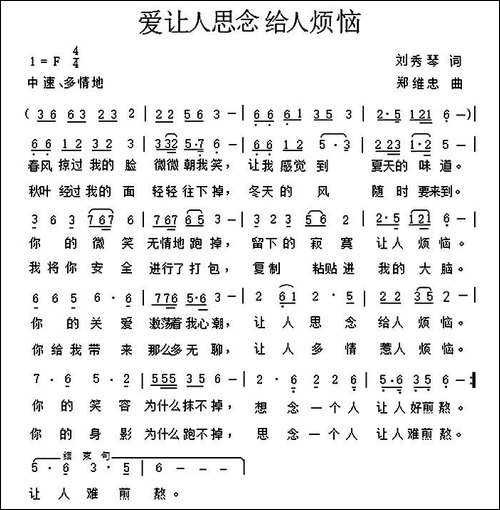 爱让人思念给人烦恼
1=F 4/4
刘秀琴 词
中速、多情地
郑维忠 曲
(36 63 23 3 | 22 56 3 - | 66 651 35 3 | 2·5 121 6 - |
66 122 16 3 | 332 5·7 6 - | 66 1 2 5·3 | 223 1·2 2 - |
春风掠过我的脸 微微朝我笑，让我感觉到 夏天的味道。
秋叶经过我的面 轻轻往下掉，冬天的风 随时要来到。
3 6 3 767 | 767 65 3 - | 3 23 3 56 | 2·5 121 6 - |
你的微笑 无情地跑掉，留下的寂寞 让人烦恼。
我将你安全 进行了打包，复制 粘贴进 我的大脑。
6 6 5 6·6 | 776 5·6 3 - | 2 61 2 5· | 22 35 2 - |
你的关爱 激荡着我心潮，让人思念 给人烦恼。
你给我带来 那么多无聊，让人多情 惹人烦恼。
7·6 5·2 | 555 35 3 - | 2·6 2 2 2 | 5·6 35 6 - :|
你的笑容 为什么抹不掉，想念一个人 让人好煎熬。
你的身影 为什么跑不掉，思念一个人 让人难煎熬。
结束句
5·6 3·5 | 6 - - - |
让人难煎熬。